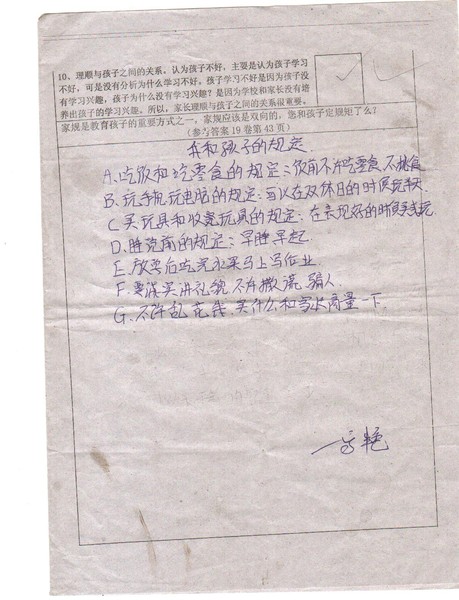 10、理顺与孩子之间的关系。认为孩子不好，主要是认为孩子学习
不好，可是没有分析为什么学习不好。孩子学习不好是因为孩子没
有学习兴趣，孩子为什么没有学习兴趣？是因为学校和家长没有培
养出孩子的学习兴趣。所以，家长理顺与孩子之间的关系很重要。
家规是教育孩子的重要方式之一，家规应该是双向的，您和孩子定规矩了么？
（参与答案19卷第43页）
我和孩子的规定
A、吃饭和吃零食的规定：饭前不许吃零食 不挑食
B、玩手机玩电脑的规定：可以在双休日的时候玩
C、买玩具和收宽玩具的规定：在表现好的时候买
D、睡觉前的规定：早睡早起
E、放学后吃完水果马上写作业
F、要诚实讲礼貌 不许撒谎 骗人
G、不许乱花钱 买什么和家长商量一下